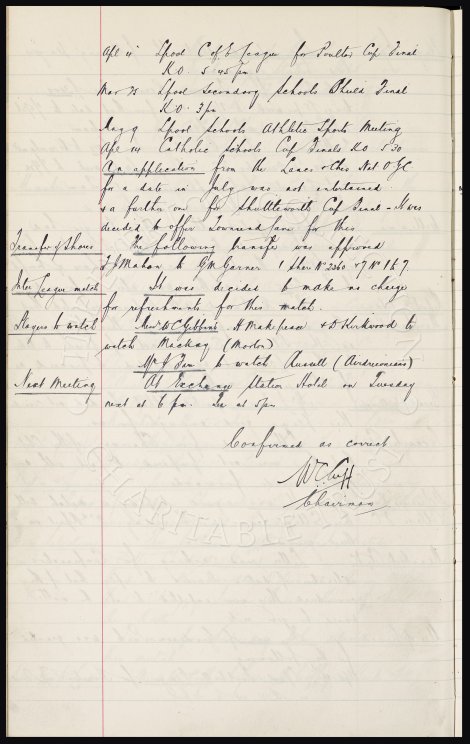 Apl 4 Lpool C of E League for Poulton Cup Final
K.O. 5.45 pm
Mar 25 Lpool Secondary Schools Shield Final
K.O. 3 pm
Aug 9 Lpool Schools Athletic Sports Meeting
Apl 14 Catholic Schools Cup Finals KO 5.30
An application from the Lancs & Ches
for a date in July was not entertained
& a further one for Shuttleworth Cup Final - It was
decided to offer Townsend Lane for this
Transfer of Shares The following transfer was approved
T J Mahon to G M Garner 1 Share No 2360 of No 1 & 7.
Inter League match It was decided to make no charge
for refreshments for this match.
Players to watch Messrs W C Gibbins A Makepeace & D Kirkwood to
watch Mackay (Morton)
to watch (Airdrieonians)
Next Meeting At Exchange Station Hotel on Tuesday
next at 6 pm. Tea at 5 pm
Confirmed as correct
W C Cuff
Chairman
CHARITABLE